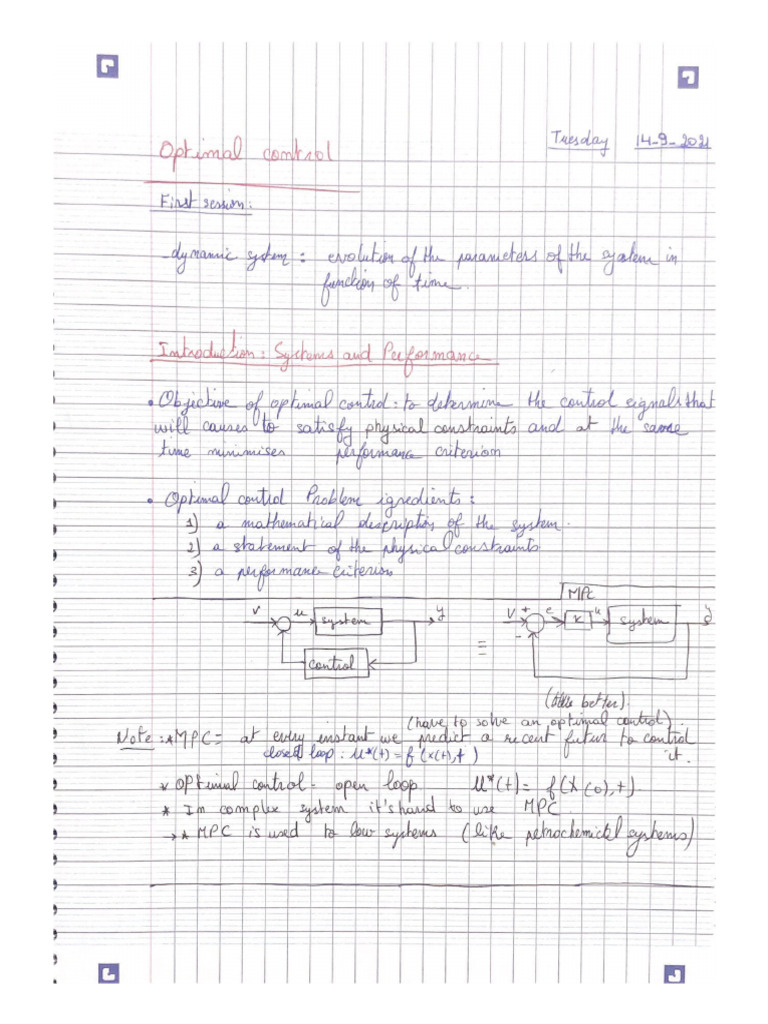 Tuesday 14-9-2021
Optimal control
First session:
-dynamic system: evolution of the parameters of the system in
function of time.
Introduction: Systems and Performance
• Objective of optimal control: to determine the control signals that
will causes to satisfy physical constraints and at the same
time minimises performance criterion
• Optimal control Problem igredients:
1) a mathematical description of the system.
2) a statement of the physical constraints
3) a performance criterion
MPC
V u system y V + e K u system y
-
control ≡
better)
(have to solve an optimal control).
Note: * MPC = at every instant we predict a recent futur to control
closed loop: u*(t) = f(x(t),t) it.
* optimal control - open loop u*(t) = f(X(0),t)
* In complex system it's hard to use MPC
→ * MPC is used to low systems (like petrochemickl systems)